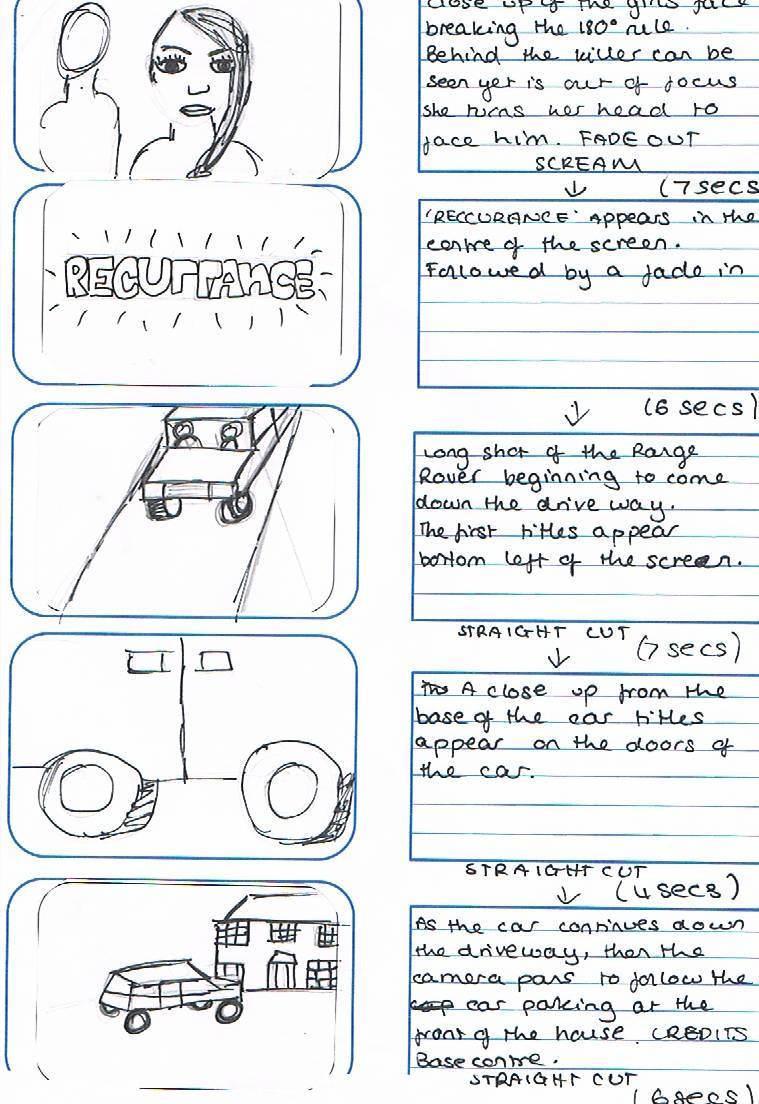 close up of the girls face
breaking the 180° rule.
Behind the killer can be
seen yet is out of focus
she turns her head to
face him. FADE OUT
SCREAM
(7secs
RECURRANCE
'RECCURANCE' Appears in the
centre of the screen.
Followed by a fade in
(6 secs)
Long shot of the Range
Rover beginning to come
down the drive way.
The first titles appear
bottom left of the screen.
STRAIGHT CUT
(7 secs)
A close up from the
base of the car titles
appear on the doors of
the car.
STRAIGHT CUT
(4secs)
As the car continues down
the driveway, then the
camera pans to follow the
car parking at the
front of the house. CREDITS
Base centre.
STRAIGHT CUT
(6secs)